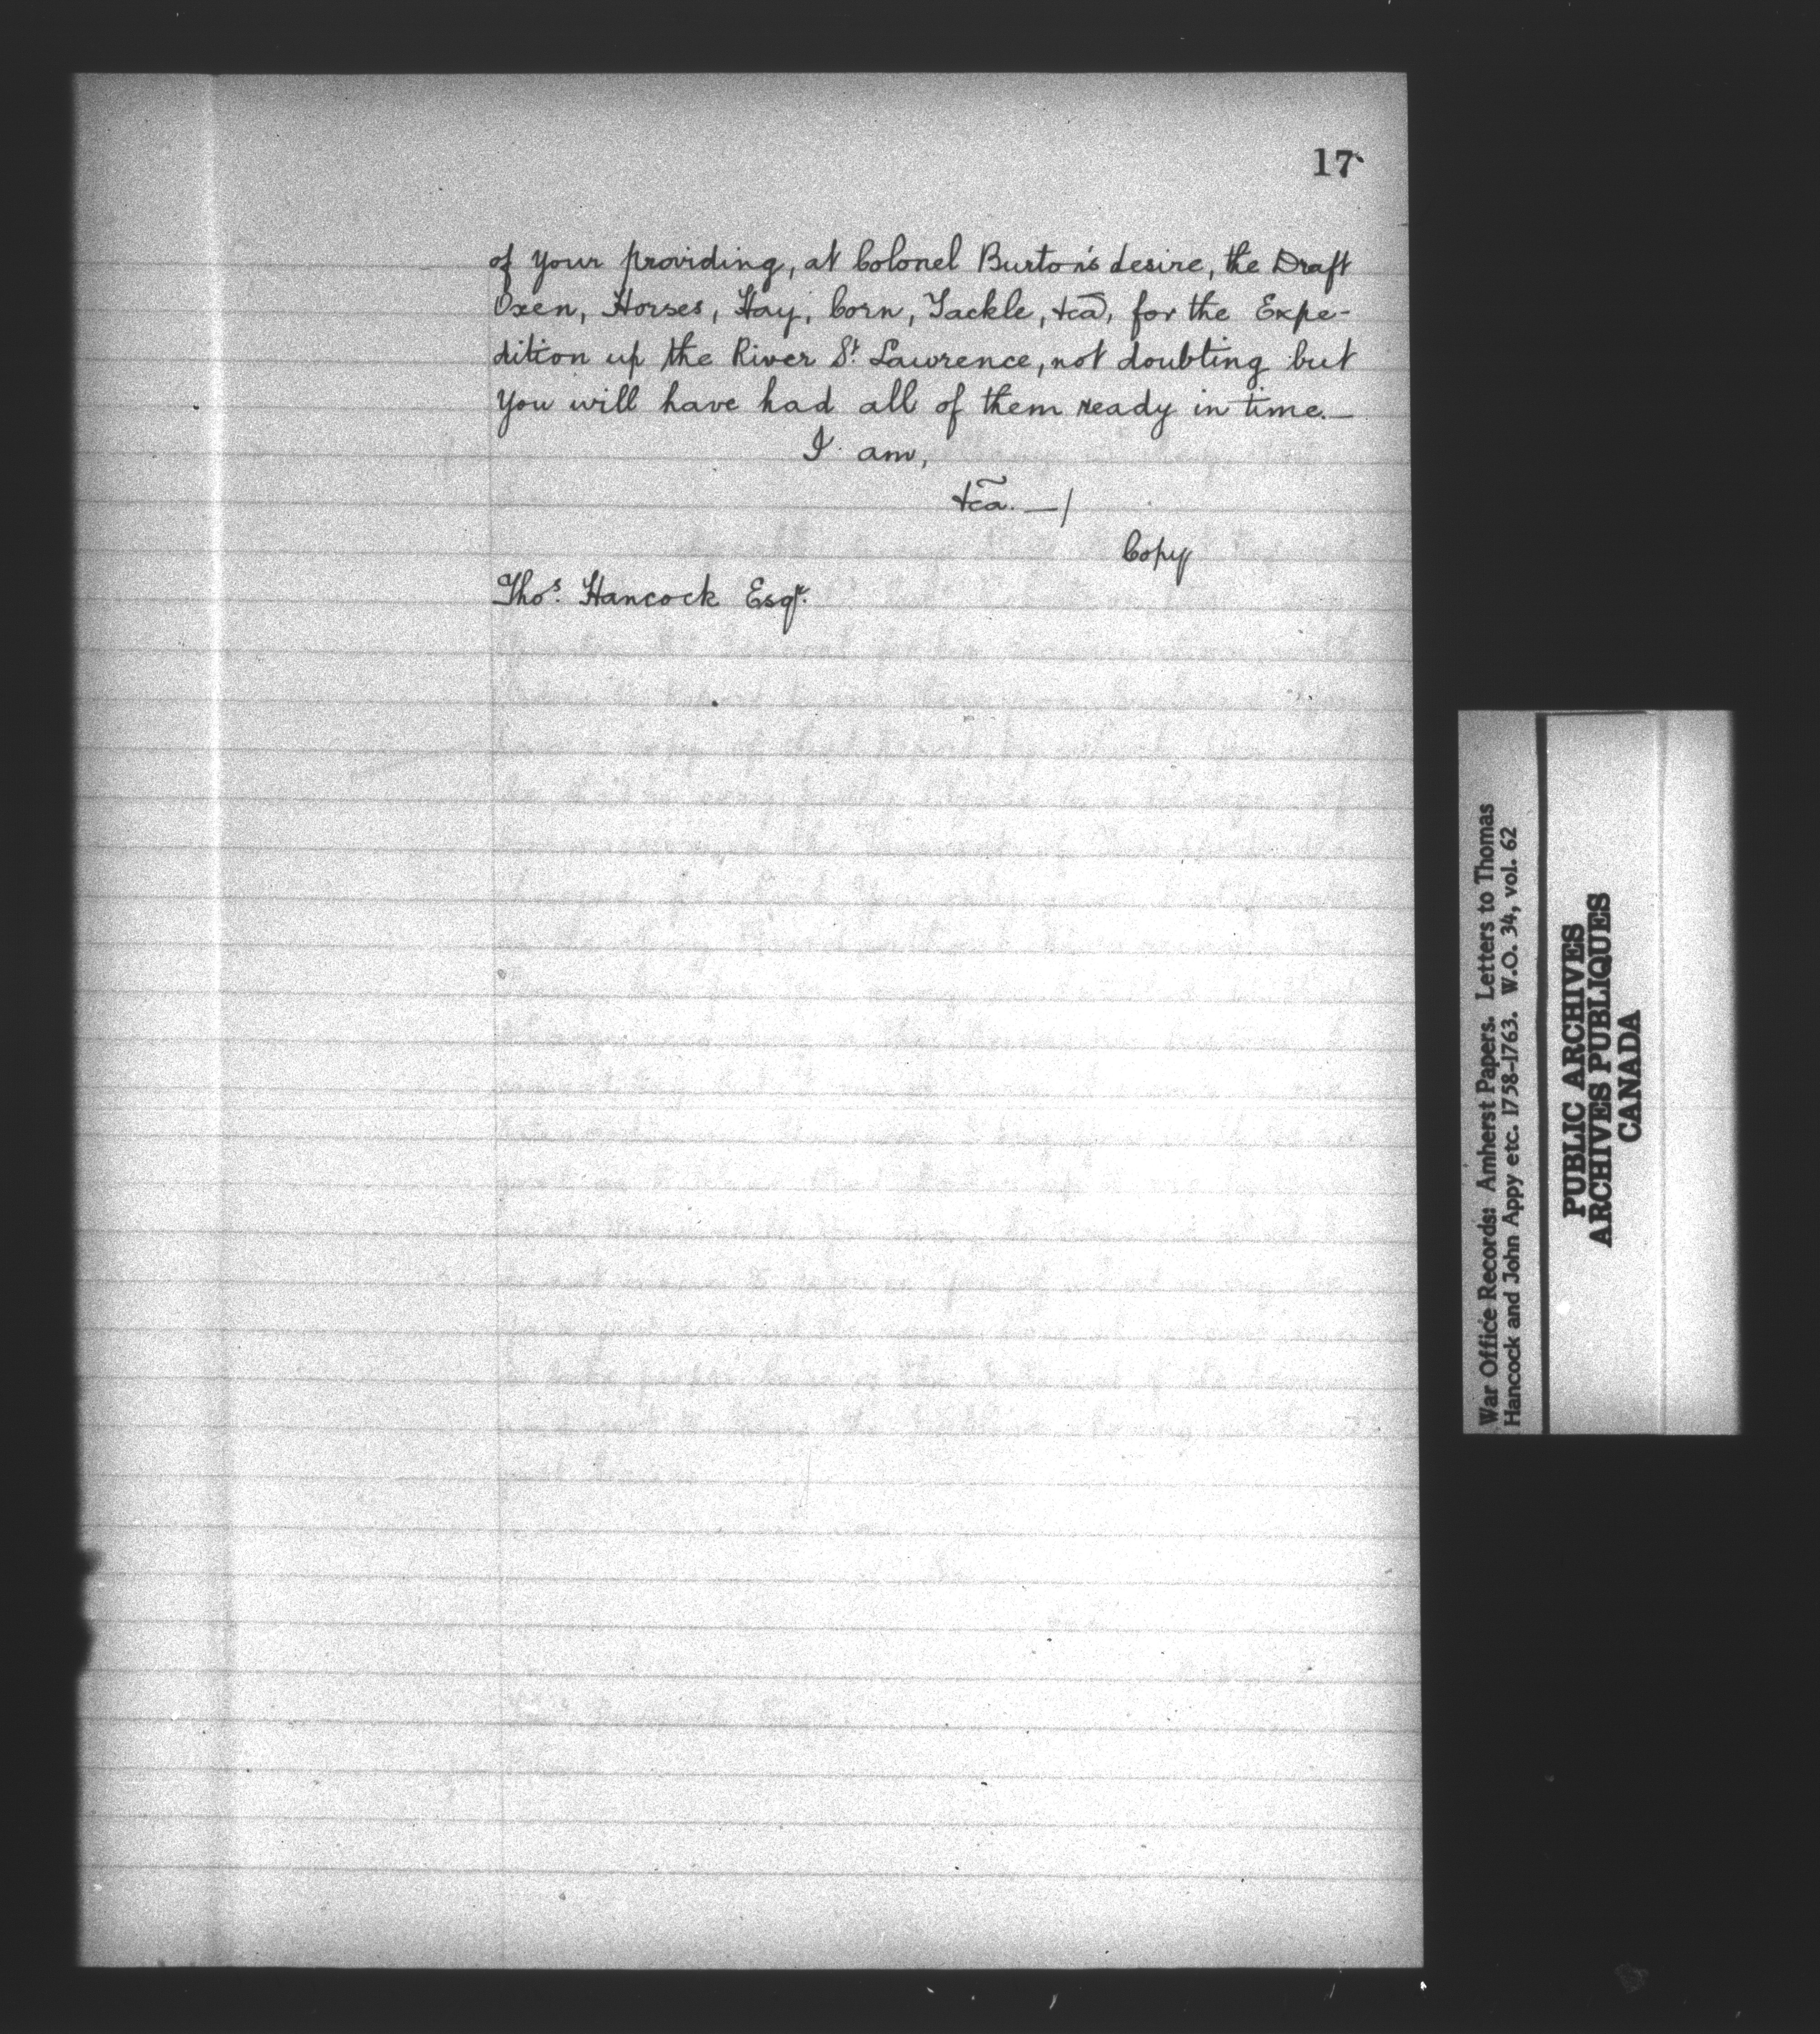 17
of your providing, at Colonel Burton's desire, the Draft
Oxen, Horses, Hay, Corn, Tackle, &cã, for the Expe-
dition up the River St. Lawrence, not doubting but
You will have had all of them ready in time.—
I am,
&cã. —/
Copy
Thos. Hancock Esqr.
War Office Records: Amherst Papers. Letters to Thomas
Hancock and John Appy etc. 1758-1763. W.O. 34, vol. 62
PUBLIC ARCHIVES
ARCHIVES PUBLIQUES
CANADA